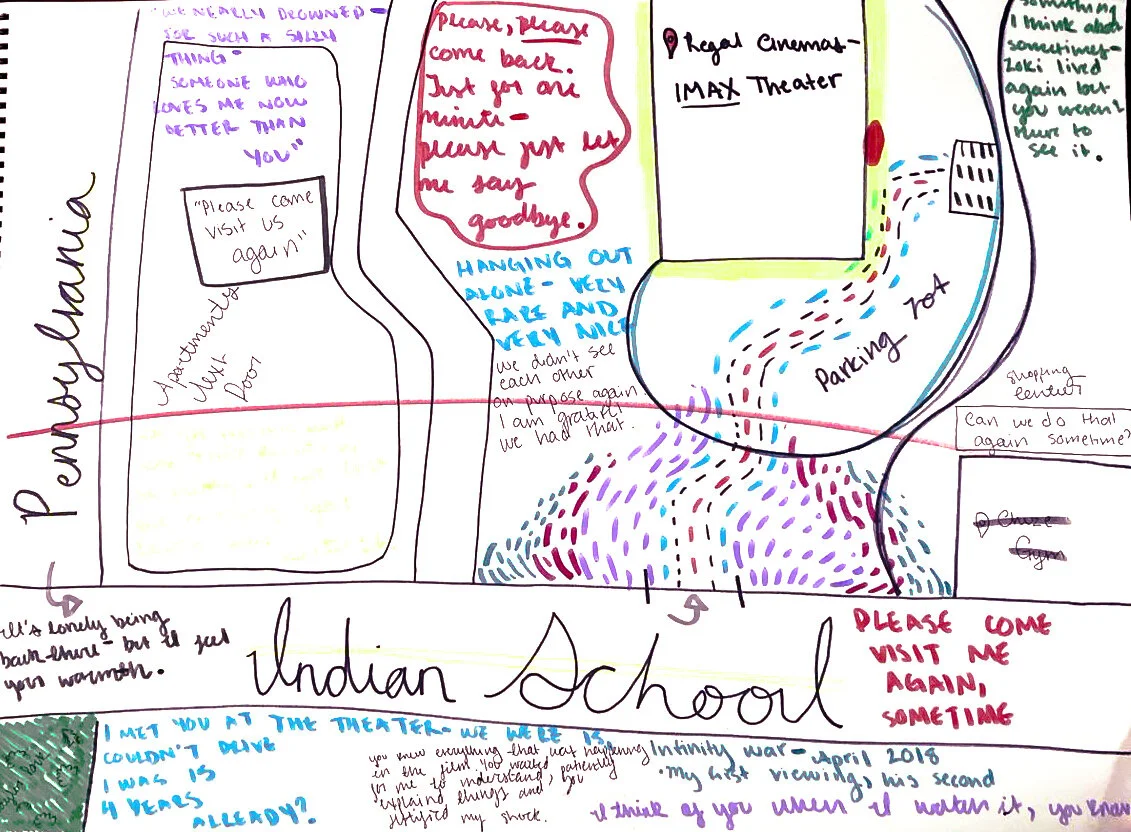 "WE NEARLY DROWNED -
FOR SUCH A SILLY
THING"
SOMEONE WHO
LOVES ME NOW
BETTER THAN
YOU"
"Please come
visit us
again"
Apartments
Next
Door
Pennsylvania
Please, please
come back.
Just for one
minute -
please just let
me say
goodbye.
HANGING OUT
ALONE - VERY
RARE AND
VERY NICE
we didn't see
each other
on purpose again
I am grateful
we had that.
Regal Cinemas -
IMAX Theater
Parking Lot
something
I think about
sometimes -
Loki lived
again but
you weren't
here to
see it.
shopping
center
Can we do that
again sometime?
Chuze
Gym
It's lonely being
back there - but I feel
your warmth.
Indian School
PLEASE COME
VISIT ME
AGAIN,
SOMETIME
I MET YOU AT THE THEATER - WE WERE 15,
COULDN'T DRIVE
I WAS 15
4 YEARS
ALREADY?
you knew everything that was happening
in the film. You waited patiently
for me to understand, you
explained things and
justified my shock.
Infinity War - April 2018
· My first viewing, his second
I think of you when I watch it, you know